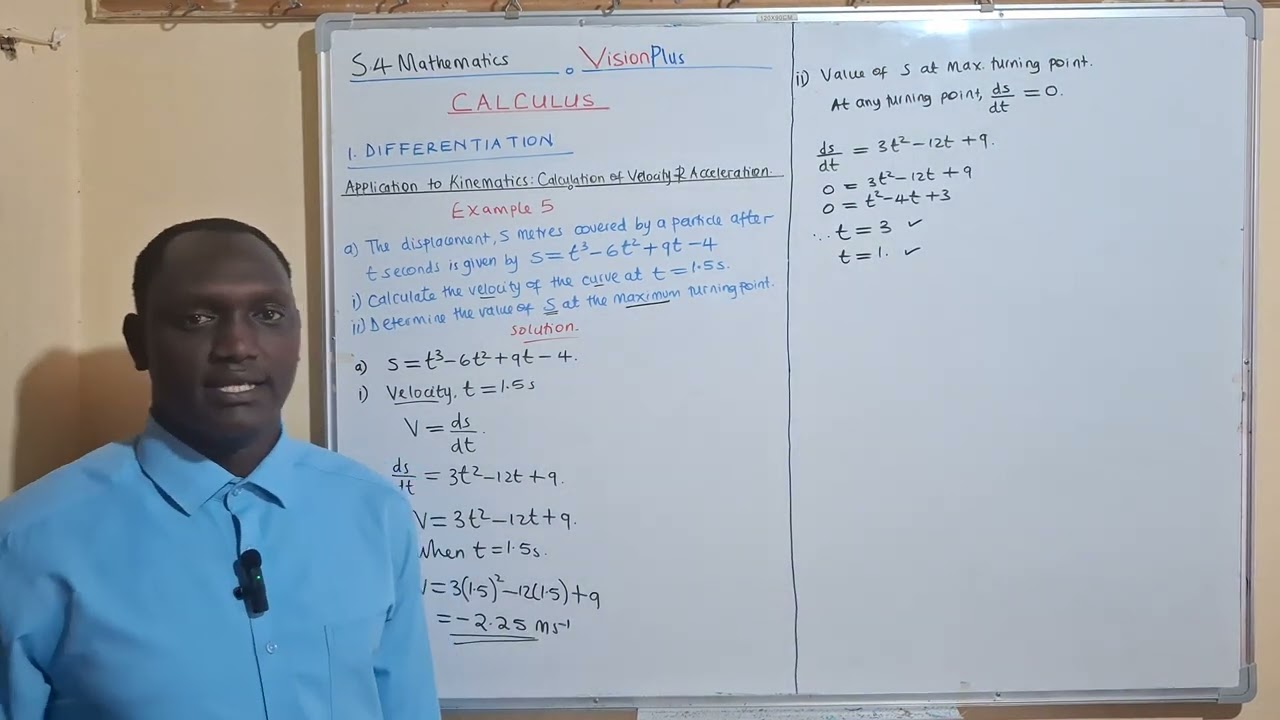 120X90CM
S.4 Mathematics
VisionPlus
CALCULUS
1. DIFFERENTIATION
Application to Kinematics: Calculation of Velocity & Acceleration.
Example 5
a) The displacement, S metres covered by a particle after
t seconds is given by S = t³ - 6t² + 9t - 4
i) Calculate the velocity of the curve at t = 1.5s.
ii) Determine the value of S at the maximum turning point.
Solution.
a) S = t³ - 6t² + 9t - 4.
i) Velocity, t = 1.5s
V = ds/dt.
ds/dt = 3t² - 12t + 9.
V = 3t² - 12t + 9.
When t = 1.5s.
V = 3(1.5)² - 12(1.5) + 9
= -2.25 ms⁻¹
ii) Value of S at Max. turning point.
At any turning point, ds/dt = 0.
ds/dt = 3t² - 12t + 9.
0 = 3t² - 12t + 9
0 = t² - 4t + 3
∴ t = 3 ✓
t = 1. ✓